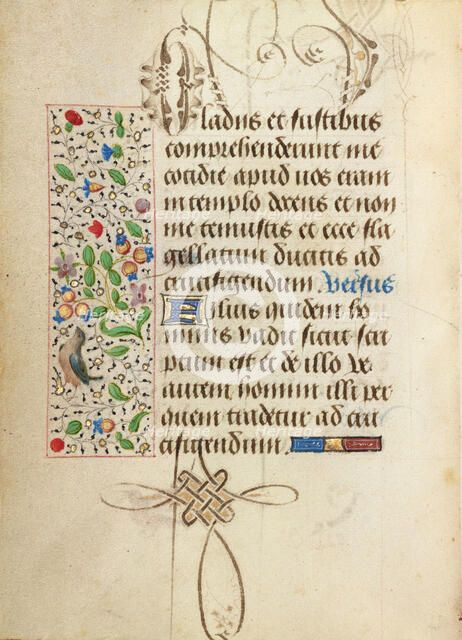 Gladiis et fustibus
comprehenderunt me
cotidie apud uos eram
in templo docens et non
me tenuistis et ecce fla
gellatum ducitis ad
crucifigendum Versus
Filius quidem ho
minis vadit sicut scri
ptum est et de illo ve
autem homini illi per
quem tradetur ad cru
cifigendum